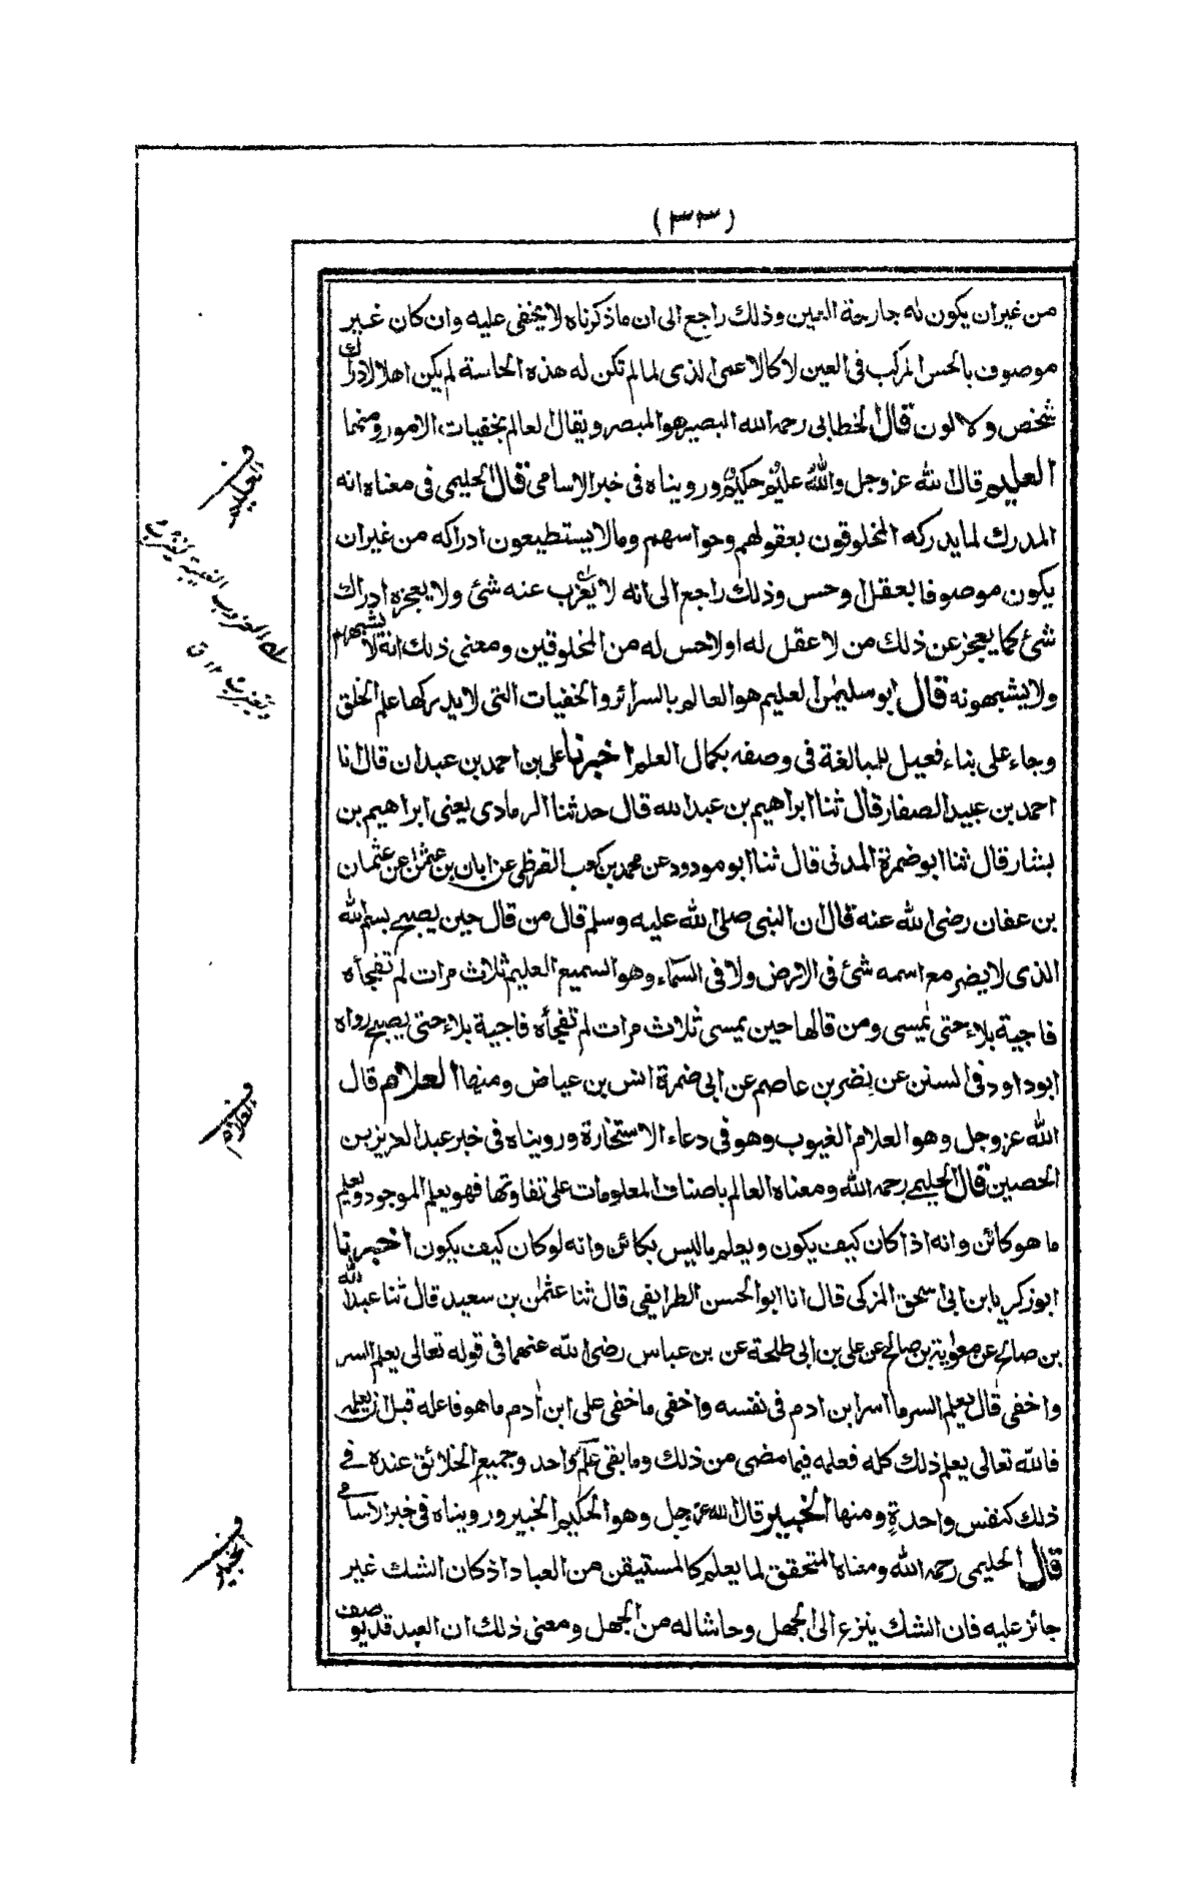 (٣٣)
من غير ان يكون له جارحة العين وذلك راجع الى ان ما ذكرناه لا يخفى عليه وان كان غير
موصوف بالحس المركب فى العين لا كالاعمى الذى لما لم تكن له هذه الحاسة لم يكن اهلا لادراك
شخص ولا لون قال الخطابى رحمه الله البصير هو المبصر ويقال العالم بخفيات الامور ومنها
العليم قال الله عز وجل والله عليم حكيم وروينا ه فى خبر الاسامى قال الحليمى فى معناه انه
المدرك لما يدركه المخلوقون بعقولهم وحواسهم وما لا يستطيعون ادراكه من غير ان
يكون موصوفا بعقل او حس وذلك راجع الى انه لا يعزب عنه شئ ولا يعجزه ادراك
شئ كما يعجز عن ذلك من لا عقل له او لا حس له من المخلوقين ومعنى ذلك انه لا يشبههم
ولا يشبهونه قال ابو سليمٰن العليم هو العالم بالسرائر والخفيات التى لا يدركها علم الخلق
وجاء على بناء فعيل للمبالغة فى وصفه بكمال العلم اخبرنا على بن احمد بن عبدان قال انا
احمد بن عبيد الصفار قال ثنا ابراهيم بن عبد الله قال حدثنا الرمادى يعنى ابراهيم بن
بشار قال ثنا ابو ضمرة المدنى قال ثنا ابو مودود عن محمد بن كعب القرظى عن ابان بن عثمٰن عن عثمان
بن عفان رضى الله عنه قال ان النبى صلى الله عليه وسلم قال من قال حين يصبح بسم الله
الذى لا يضر مع اسمه شئ فى الارض ولا فى السماء وهو السميع العليم ثلاث مرات لم تفجأه
فاجية بلاء حتى يمسى ومن قالها حين يمسى ثلاث مرات لم تفجأه فاجية بلاء حتى يصبح رواه
ابوداود فى السنن عن نضر بن عاصم عن ابى ضمرة انس بن عياض ومنها العلام قال
الله عز وجل وهو العلام الغيوب وهو فى دعاء الاستخارة وروينا ه فى خبر عبد العزيز بن
الحصين قال الحليمى رحمه الله ومعناه العالم باصناف المعلومات على تفاوتها فهو يعلم الموجود ويعلم
ما هو كائن وانه اذا كان كيف يكون ويعلم ما ليس بكائن وانه لو كان كيف يكون اخبرنا
ابو زكريا بن ابى اسحق المزكى قال انا ابو الحسن الطرايفى قال ثنا عثمٰن بن سعيد قال ثنا عبد الله
بن صالح عن معوية بن صالح عن على بن ابى طلحة عن بن عباس رضى الله عنهما فى قوله تعالى يعلم السر
واخفى قال يعلم السر ما اسر ابن ادم فى نفسه واخفى ما خفى على ابن ادم ما هو فاعله قبل ان يعلمه
فالله تعالى يعلم ذلك كله فعلمه فيما مضى من ذلك وما بقى علم واحد وجميع الخلائق عنده فى
ذلك كنفس واحدة ومنها الخبير قال الله عز وجل وهو الحكيم الخبير وروينا ه فى خبر الاسامى
قال الحليمى رحمه الله ومعناه المتحقق لما يعلم كالمستيقن من العباد اذ كان الشك غير
جائز عليه فان الشك ينزع الى الجهل وحاشا له من الجهل ومعنى ذلك ان العبد قد يوصف
ف العليم
له العزوب الغيبة
ف العلام
ف الخبير